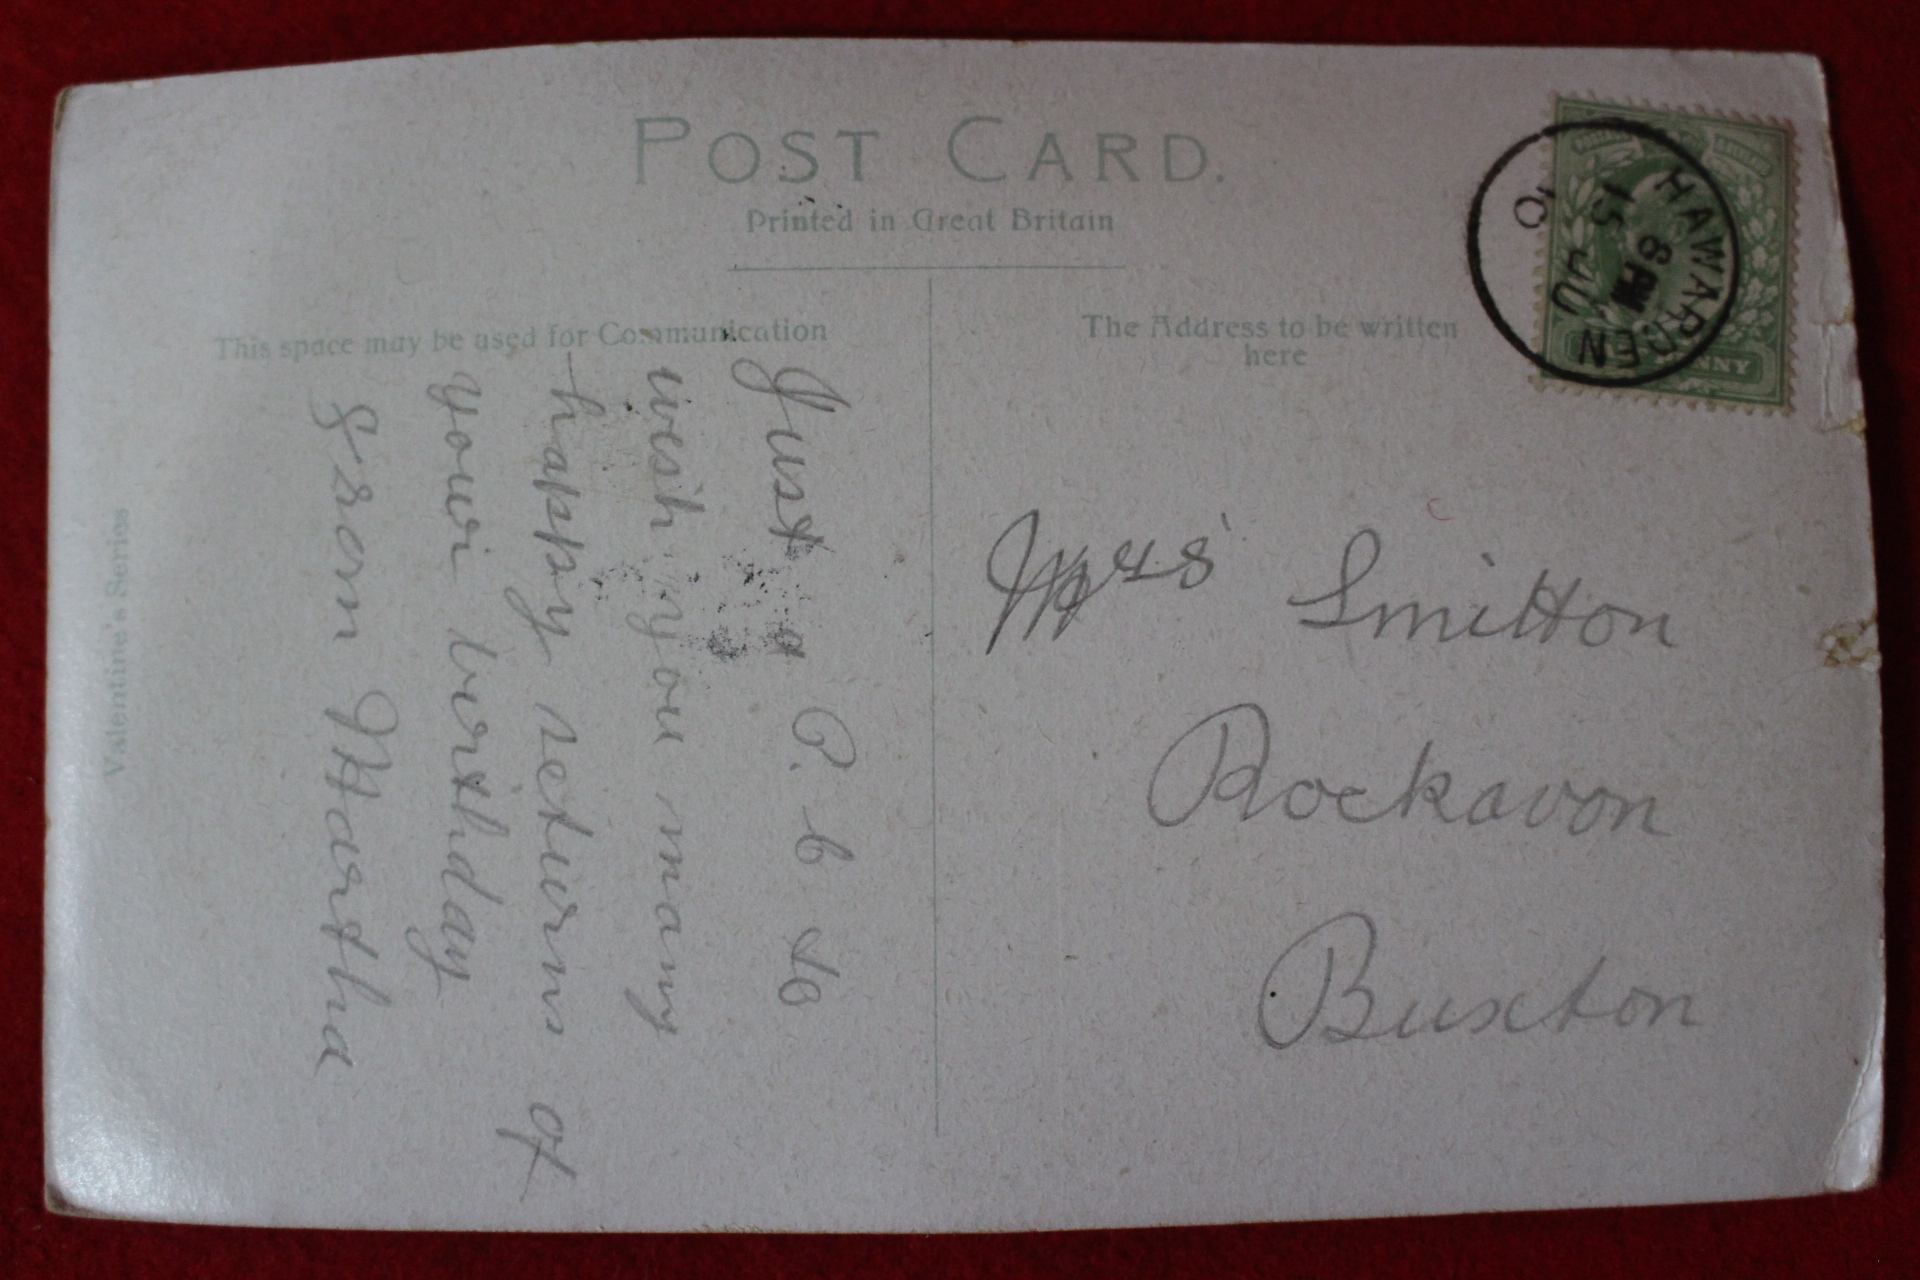 POST CARD.
Printed in Great Britain
This space may be used for Communication
The Address to be written
here
HAWARDEN
8 PM
15 JU
10
Just a P. C to
wish you many
happy returns of
your birthday
From Martha
Mrs Smitton
Rockavon
Buxton
Valentine's Series